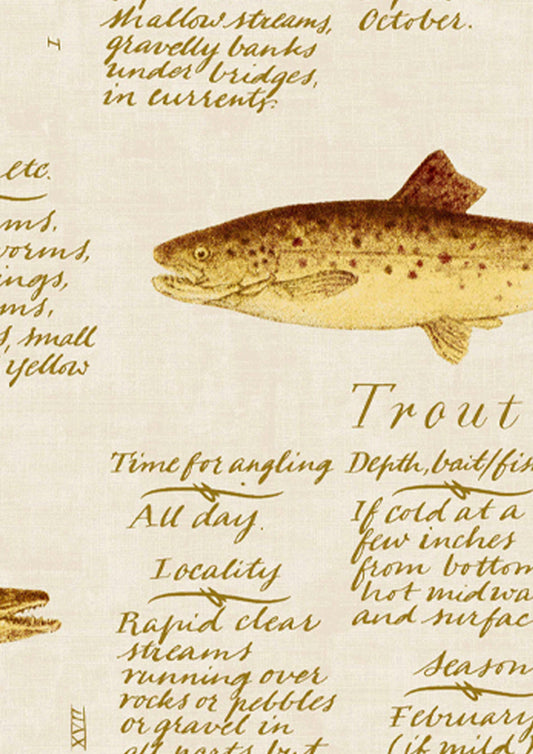 shallow streams,
gravelly banks
under bridges,
in currents.
October.
I
etc.
small
yellow
Trout
Time for angling
All day.
Locality
Rapid clear
streams
running over
rocks or pebbles
or gravel in
all parts but
Depth, bait/fis
If cold at a
few inches
from bottom
hot midwa
and surfac
Season
February
(if mild)